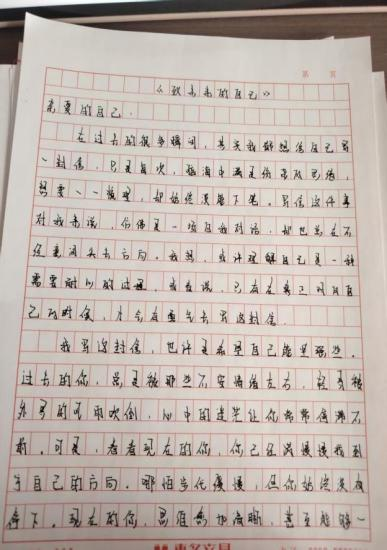 第 页
《致未来的自己》
亲爱的自己:
在过去的很多瞬间,其实我都想给自己写
一封信,只是每次,脑海中满是
想要一一梳理,却始终没能下笔。写信这件事
对我来说,仿佛是一场自我对话,却也总在不
经意间失去方向。我想,或许理解自己是一种
需要耐心的过程,或者说,只有在真正明白自
己的时候,才会有勇气去写这封信。
我写这封信,也许是希望自己能坚强些。
过去的你,总是被那些不安情绪左右,轻易被
外界的风雨吹倒,心中的迷茫让你常常停滞不
前。可是,看看现在的你,你已经慢慢找到
了自己的方向。哪怕步伐缓慢,但你始终没有
停下。现在的你,思维更加清晰,甚至能够一